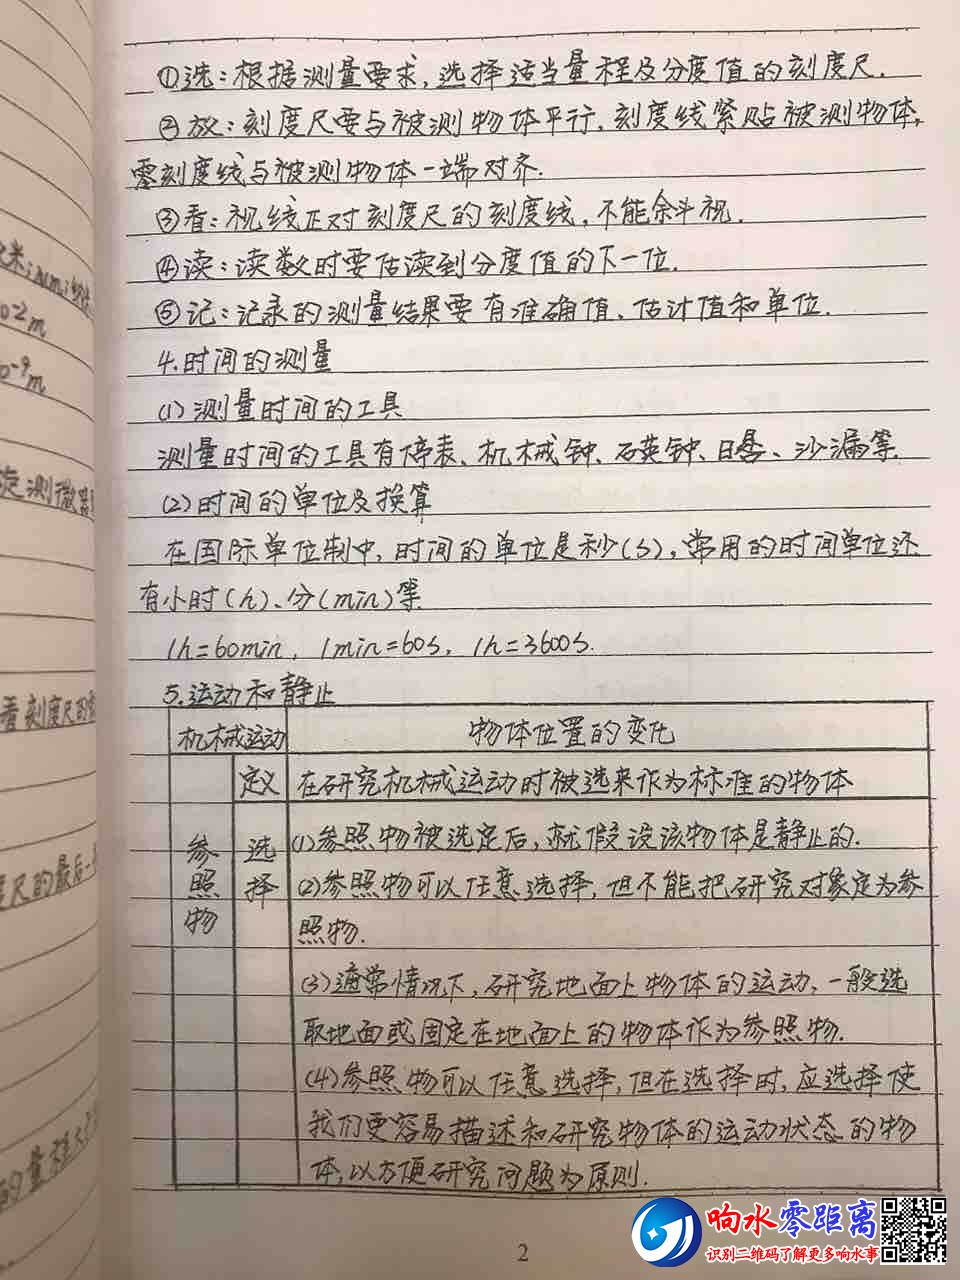 ①选：根据测量要求，选择适当量程及分度值的刻度尺.
②放：刻度尺要与被测物体平行，刻度线紧贴被测物体，
零刻度线与被测物体一端对齐.
③看：视线正对刻度尺的刻度线，不能余斗视.
④读：读数时要估读到分度值的下一位.
⑤记：记录的测量结果要有准确值、估计值和单位.
4.时间的测量
(1)测量时间的工具
测量时间的工具有停表、机械钟、石英钟、日晷、沙漏等.
(2)时间的单位及换算
在国际单位制中，时间的单位是秒(s)，常用的时间单位还
有小时(h)、分(min)等
1h=60min，1min=60s，1h=3600s.
5.运动和静止
机械运动 物体位置的变化
参照物 定义 在研究机械运动时被选来作为标准的物体
选择 (1)参照物被选定后，就假设该物体是静止的.
(2)参照物可以任意选择，但不能把研究对象定为参
照物.
(3)通常情况下，研究地面上物体的运动，一般选
取地面或固定在地面上的物体作为参照物.
(4)参照物可以任意选择，但在选择时，应选择使
我们更容易描述和研究物体的运动状态的物
体，以方便研究问题为原则.
2
响水零距离
识别二维码了解更多响水事
米；nm；纳米
0⁻²m
0⁻⁹m
旋测微器
看刻度尺的零
度尺的最后一
的量程大